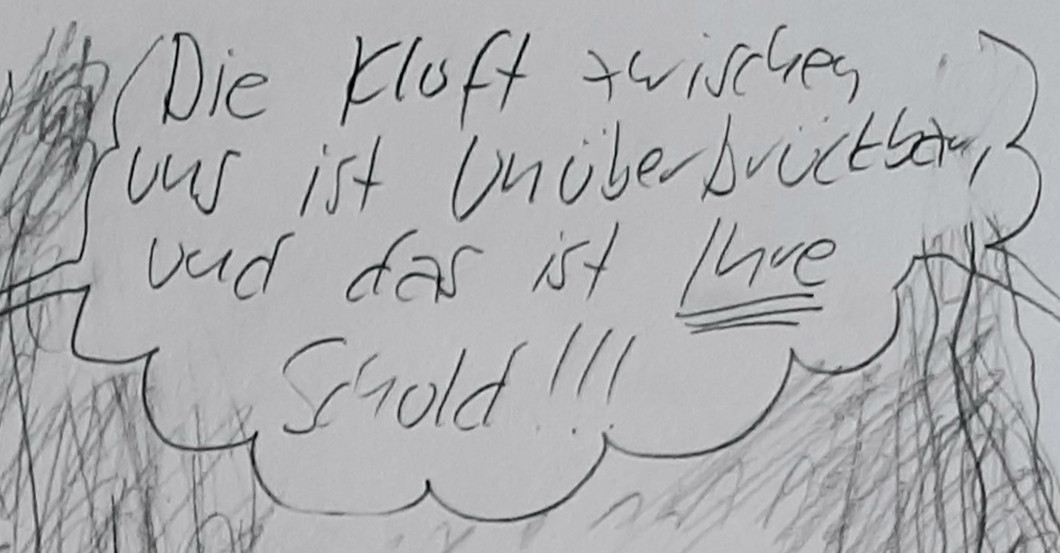 Die Kluft zwischen
uns ist Unüberbrückbar,
und das ist Ihre
Schuld!!!